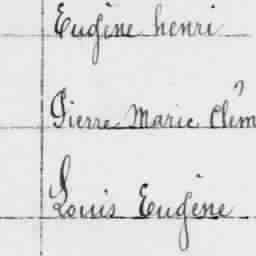 Eugène henri
Pierre Marie Clém
Louis Eugène